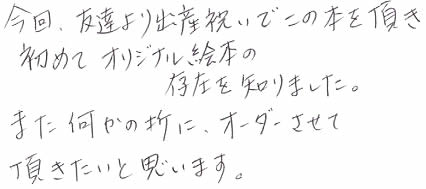 今回、友達より出産祝いでこの本を頂き
初めてオリジナル絵本の
存在を知りました。
また何かの折に、オーダーさせて
頂きたいと思います。